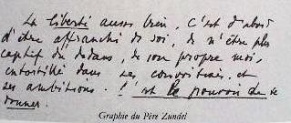 La liberté aussi bien, c'est d'abord
d'être affranchi de soi, de n'être plus
captif du dedans, de son propre moi,
entortillé dans ses convoitises et
ses ambitions. C'est le pouvoir de se
donner.
Graphie du Père Zundel